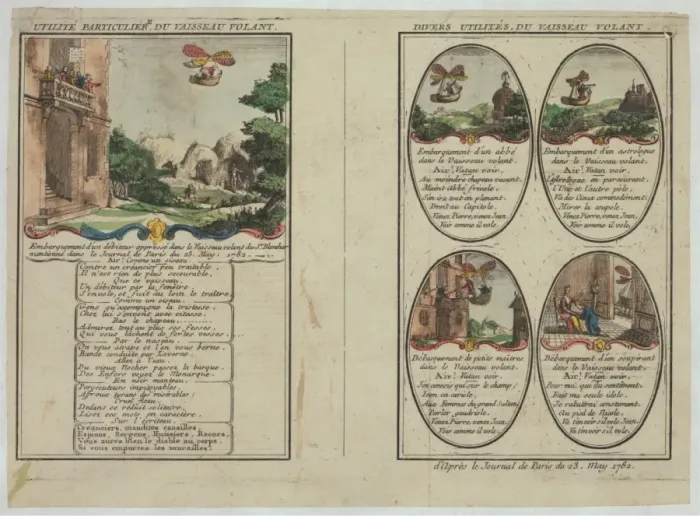 UTILITÉ PARTICULIERE DU VAISSEAU VOLANT.
Embarquement d'un débiteur oppressé dans le Vaisseau volant du Sr. Blanchar
mentionné dans le Journal de Paris du 28. May. 1782.
Air: Comme un oiseau.
Contre un créancier peu traitable,
Il n'est rien de plus secourable,
Que ce vaisseau.
Un débiteur par la fenêtre,
S'envole, et fuit au loin le traître,
Comme un oiseau.
Gens qu'accompagne la tristesse,
Chez lui s'en vont avec vitesse.
Bas le chapeau
Admirez tout au plus ses fesses,
Qui vous lâchent de fortes vesses,
Par le naseau.
On vous attrape et l'on vous berne,
Bande conduite par
Allez à l'eau.
Du vieux Nocher passez la barque,
Des Enfers voyez le Monarque,
En noir manteau.
Persécuteurs impitoyables,
Affreux tyrans des misérables;
Cruel fléau.
Dedans ce réduit solitaire,
Lisez ces mots en caractère,
Sur l'écriteau.
Créanciers, maudites canailles,
Espions, Sergens, Huissiers, Recors,
Vous aurez bien le diable au corps,
Si vous emportez les murailles!
DIVERS UTILITÉS, DU VAISSEAU VOLANT.
Embarquement d'un abbé
dans le Vaisseau volant.
Air, Va-t-en voir,
Au moindre chapeau vacant,
Maint Abbé frivole,
S'en ira tout en planant,
Droit au Capitole,
Venez Pierre, venez Jean,
Voir comme il vole.
Embarquement d'un astrologue
dans le Vaisseau volant.
Air, Va-t-en voir,
L'astrologue en parcourant,
L'Une et l'autre pôle,
Va des Cieux commodément,
Mirer la coupole,
Venez Pierre, venez Jean,
Voir comme il vole.
Débarquement de petits maîtres
dans le Vaisseau volant.
Air, Va-t-en voir,
Aux Femmes du grand Sultan,
Parler gaudriole,
Venez Pierre, venez Jean,
Voir comme il vole.
Débarquement d'un soupirant
dans le Vaisseau volant.
Air, Va-t-en voir,
Pour moi, qui du sentiment,
Fait ma seule idole,
Je rabattrai constament,
Au pied de Nicole,
Va t'en voir s'il vole, Jean,
Va t'en voir s'il vole.
d'Après le Journal de Paris du 28. May 1782.